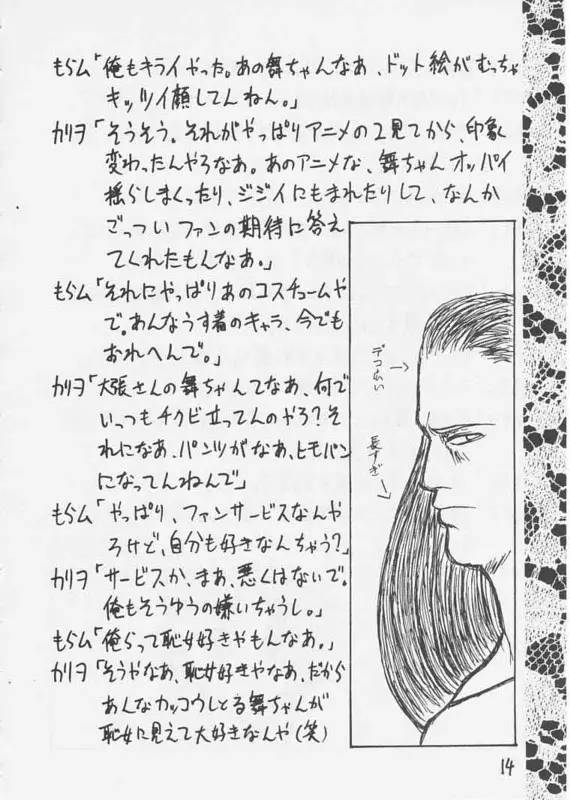 もらム「俺もキライやった。あの舞ちゃんなあ、ドット絵がむっちゃ
キッツイ顔してんねん。」
カリヲ「そうそう。それがやっぱりアニメの2見てから、印象
変わったんやろなあ。あのアニメな、舞ちゃんオッパイ
揺らしまくったり、ジジイにもまれたりして、なんか
ごっついファンの期待に答え
てくれたもんなあ。」
もらム「それにやっぱりあのコスチュームや
で。あんなうす着のキャラ、今でも
おれへんで。」
カリヲ「大張さんの舞ちゃんてなあ、何で
いっつもチクビ立ってんのやろ?そ
れになあ、パンツがなあ、ヒモパン
になってんねんで」
もらム「やっぱり、ファンサービスなんや
ろけど、自分も好きなんちゃう?」
カリヲ「サービスか、まあ、悪くはないで。
俺もそうゆうの嫌いちゃうし。」
もらム「俺らって恥女好きやもんなあ。」
カリヲ「そうやなあ、恥女好きやなあ、だから
あんなカッコウしとる舞ちゃんが
恥女に見えて大好きなんや(笑)
長すぎ
14